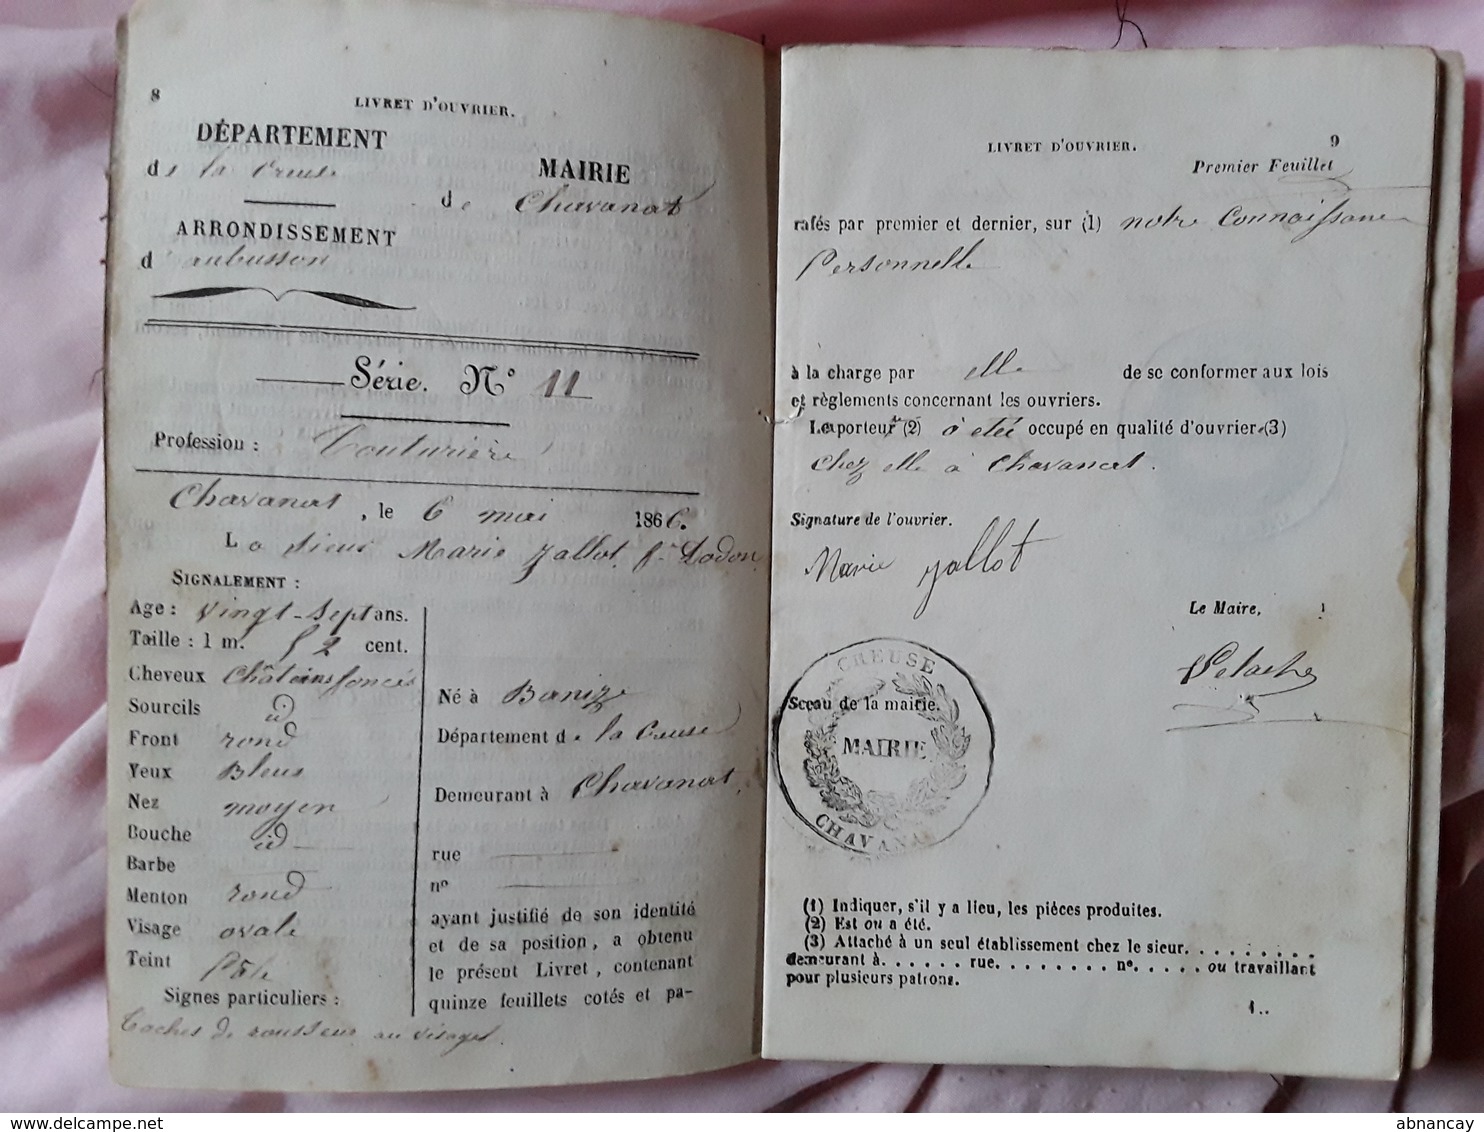 8
LIVRET D'OUVRIER.
DÉPARTEMENT
de la Creuse
MAIRIE
de Chavanat
ARRONDISSEMENT
d'aubusson
Série. N° 11
Profession : Couturière
Chavanat, le 6 mai 1866.
La sieur Marie Jallot, fe Dodon
SIGNALEMENT :
Age : vingt-sept ans.
Taille : 1 m. 52 cent.
Cheveux Châtains foncés
Sourcils id
Front rond
Yeux Bleus
Nez moyen
Bouche id
Barbe
Menton rond
Visage ovale
Teint Pâle
Signes particuliers :
Taches de rousseur au visage.
Né à Banize
Département de la Creuse
Demeurant à Chavanat,
rue
n°
ayant justifié de son identité
et de sa position, a obtenu
le présent Livret, contenant
quinze feuillets cotés et pa-
9
LIVRET D'OUVRIER.
Premier Feuillet
rafés par premier et dernier, sur (1) notre Connaissance
Personnelle
à la charge par elle de se conformer aux lois
et règlements concernant les ouvriers.
La porteur (2) a été occupé en qualité d'ouvrier (3)
chez elle à Chavanat.
Signature de l'ouvrier.
Marie Jallot
Le Maire,
Sceau de la mairie.
CREUSE
MAIRIE
CHAVANAT
(1) Indiquer, s'il y a lieu, les pièces produites.
(2) Est ou a été.
(3) Attaché à un seul établissement chez le sieur. . . . . . . . .
demeurant à. . . . . . rue. . . . . . . . n°. . . . . ou travaillant
pour plusieurs patrons.
1..
abnancay